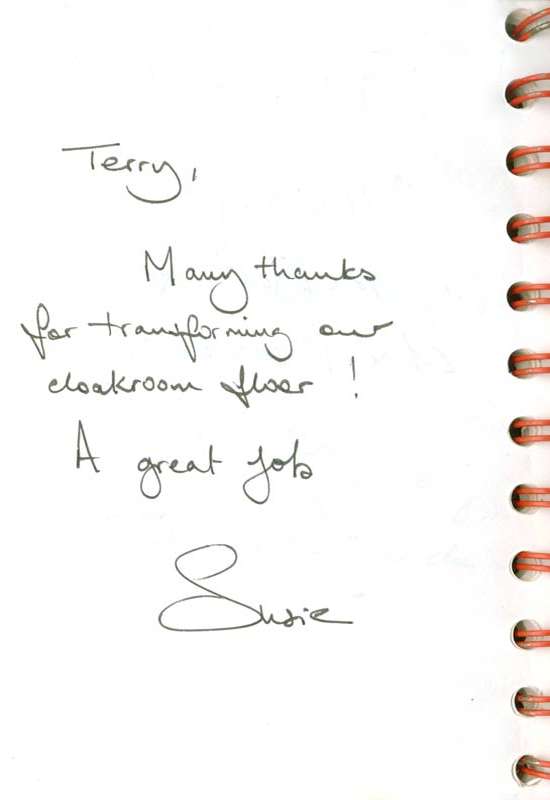 Terry,
Many thanks
for transforming our
cloakroom floor !
A great job
Susie